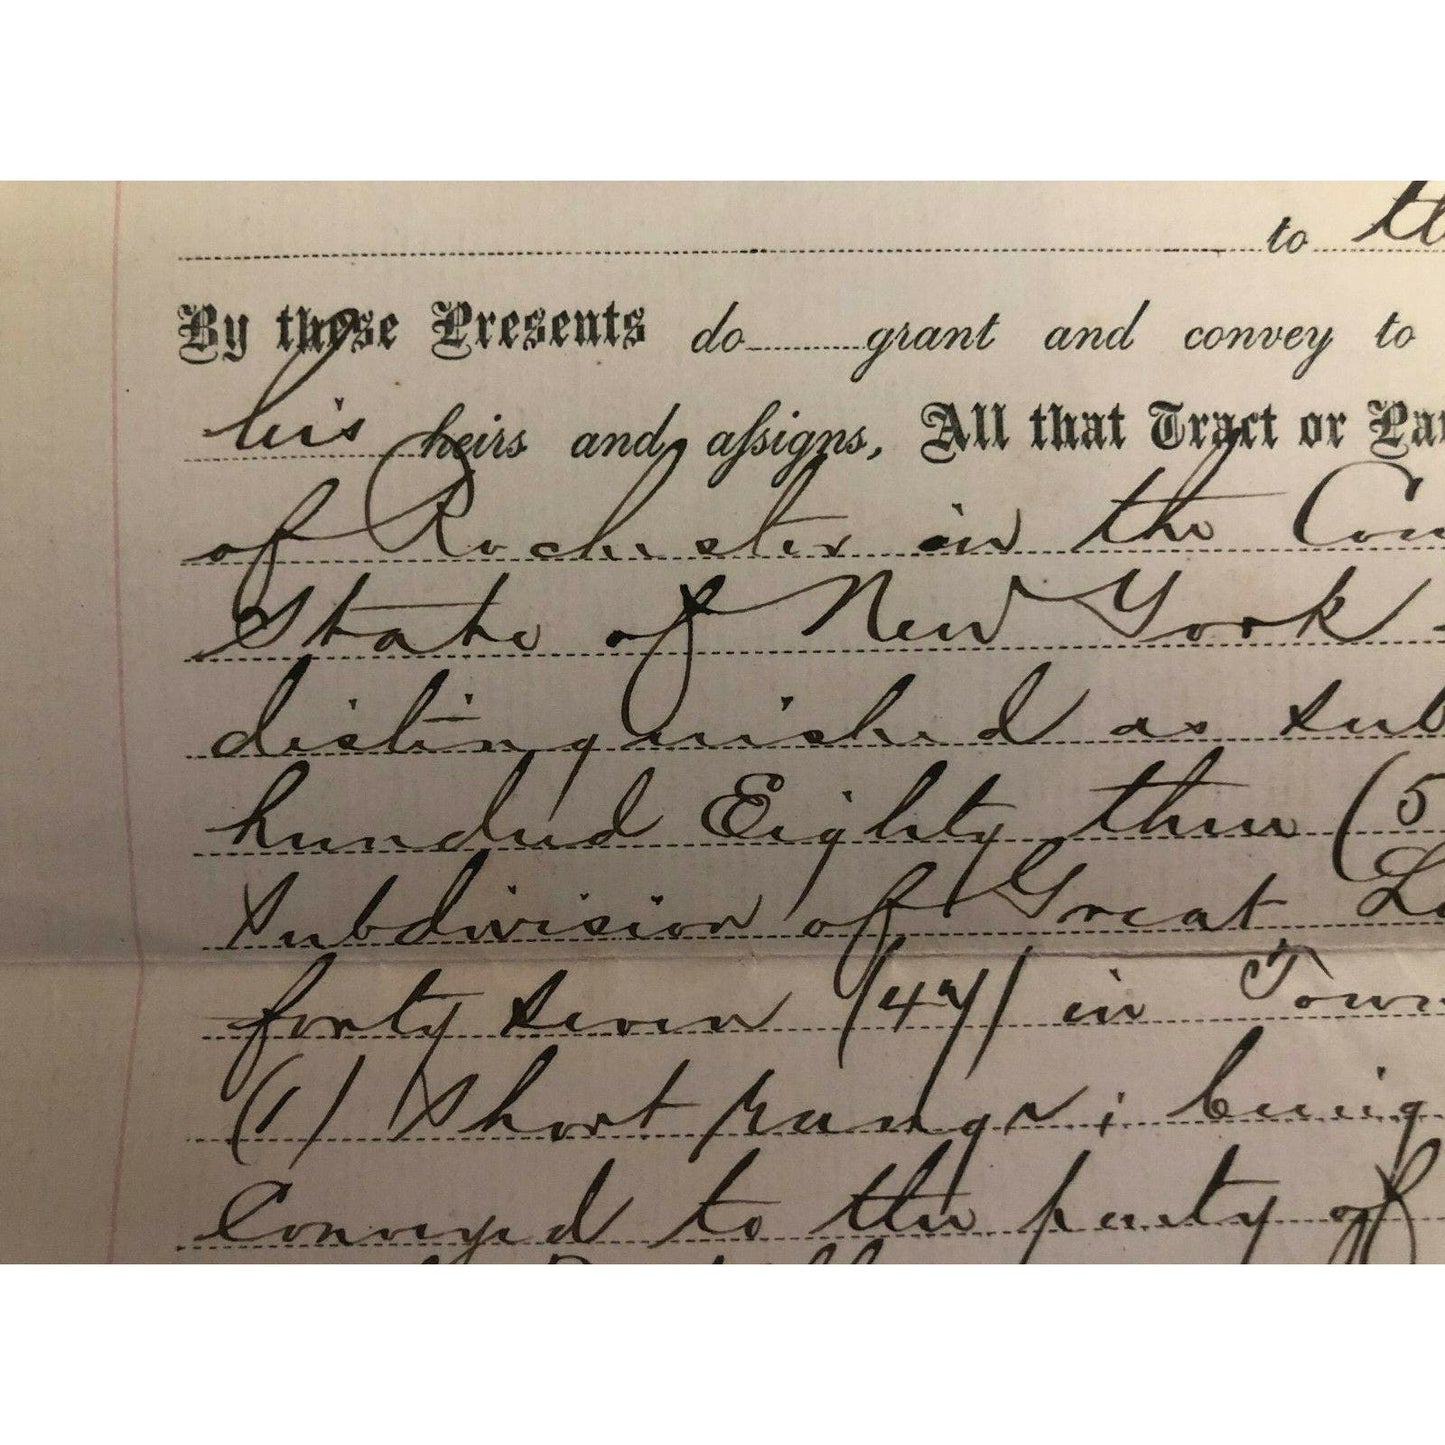 to
By these Presents do grant and convey to
his heirs and aſsigns, All that Tract or Par
of Rochester in the Coun
State of New York
distinguished as sub
hundred Eighty three (5
subdivision of Great Lo
forty seven (47) in Town
(1) Short range; being
Conveyed to the party of